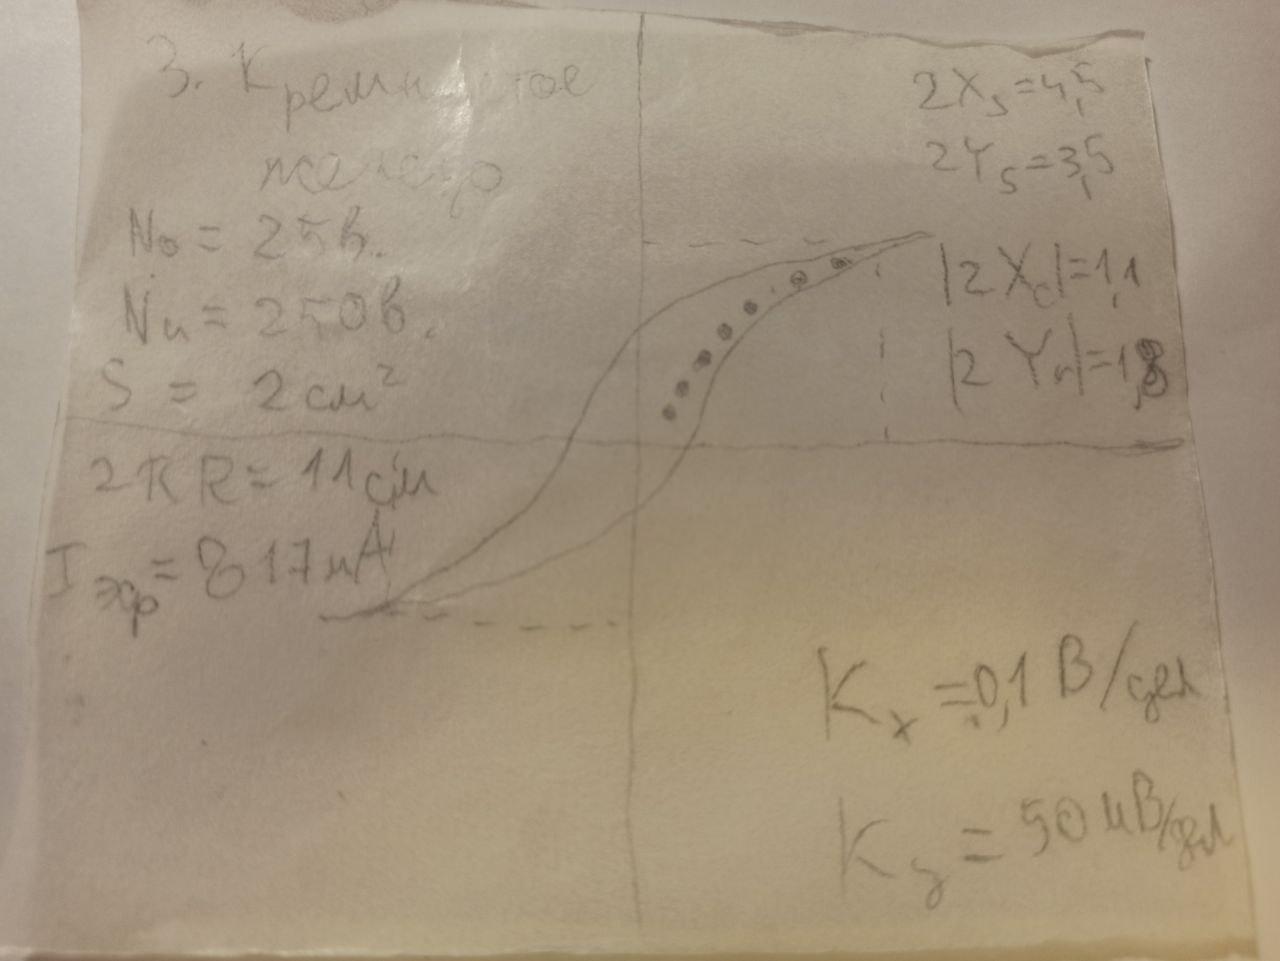 3. Кремнистое
железо
N₀ = 25 в.
Nи = 250 в.
S = 2 см²
2πR = 11 см
Iэф = 817 мА
2Xs = 4,5
2Ys = 3,5
|2Xc| = 1,1
|2Yr| = 1,8
Kx = 0,1 В/дел
Ky = 50 мВ/дел